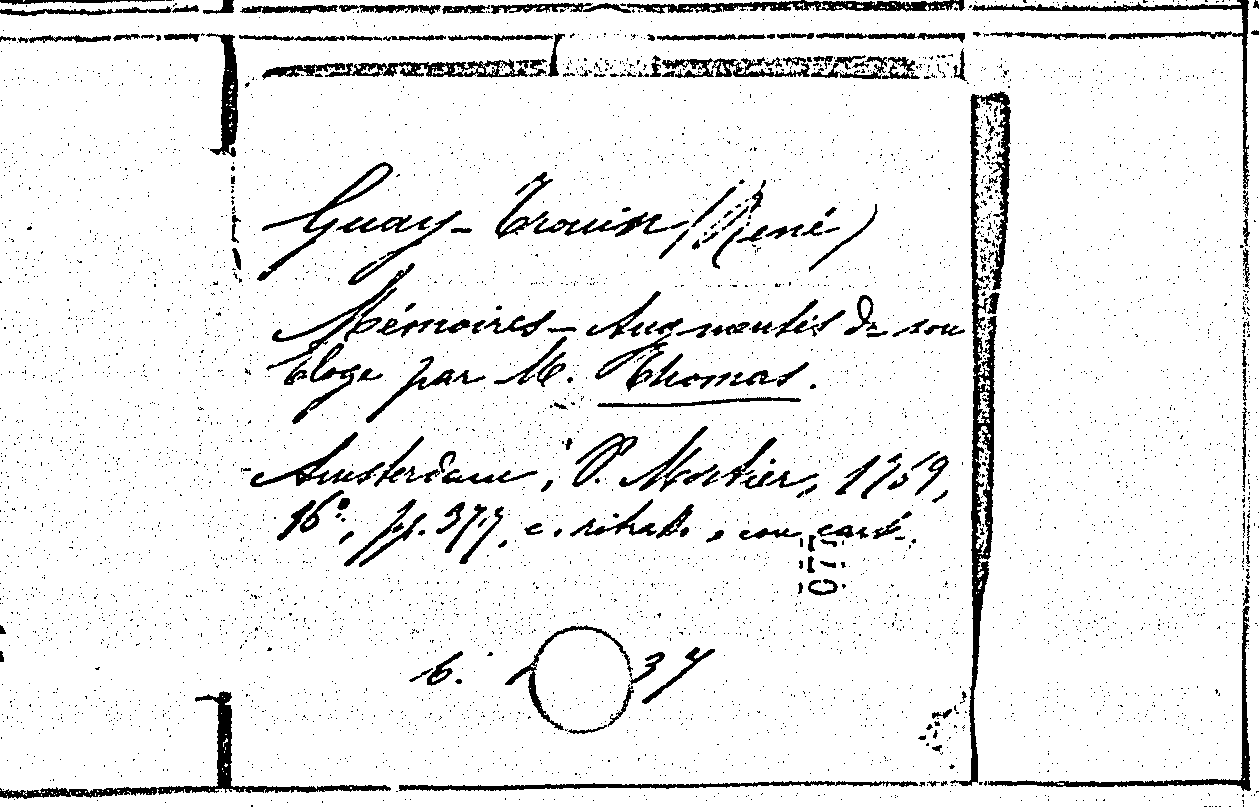 Guay-Trouin (René)
Mémoires - Augmentés de son
Eloge par M. Thomas.
Amsterdam, P. Mortier, 1759,
16°, pp. 377, c. ritratto, e con carte.
b. 37